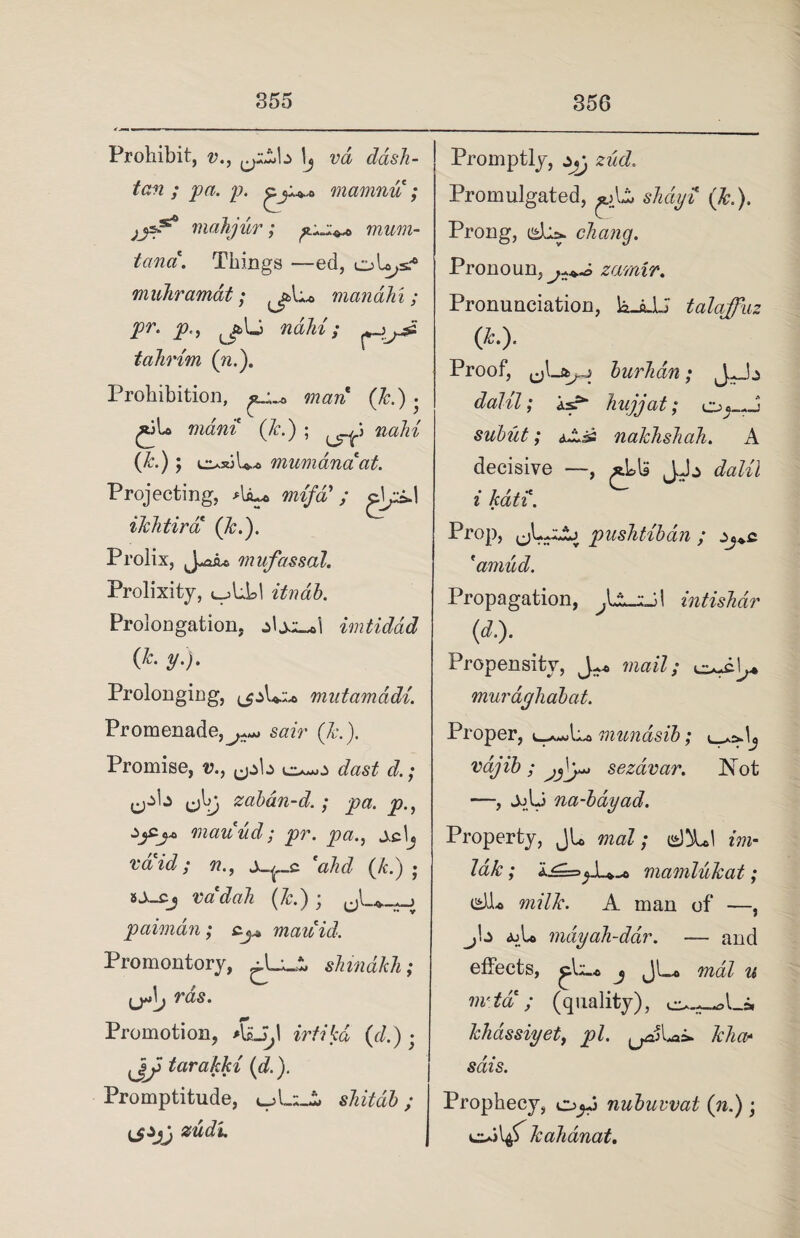 355
356
Prohibit, v., وا داشتن vá dásh-
tan ; pa. p. ممنوع mamnú‘ ;
محجور mahjúr ; ممتنع mum-
tana‘. Things —ed, محرمات
muhramát ; مناهی manáhí ;
pr. p., ناهی náhí ; تحریم
tahrím (n.).
Prohibition, منع man‘ (k.) ;
مانع máni‘ (k.) ; نهی nahí
(k.) ; ممانعت mumána‘at.
Projecting, میفاء mífá’ ; اختراع
ikhtirá‘ (k.).
Prolix, مفصل mufassal.
Prolixity, اطناب itnáb.
Prolongation, امتداد imtidád
(k. y.).
Prolonging, متمادی mutamádí.
Promenade, سیر sair (k.).
Promise, v., دست دادن dast d. ;
زبان دادن zabán-d. ; pa. p.,
موعود mau‘úd ; pr. pa., واعد
vá‘id ; n., عهد ‘ahd (k.) ;
وعده va‘dah (k.) ; پیمان
paimán ; موع mau‘id.
Promontory, شناخ shinákh ;
راس rás.
Promotion, ارتقاء irtiká (d.) ;
ترقی tarakkí (d.).
Promptitude, شتاب shitáb ;
زودی zúdí.
Promptly, زود zúd.
Promulgated, شایع sháyi‘ (k.).
Prong, چنگ chang.
Pronoun, ضمیر zamír.
Pronunciation, تلفظ talaffuz
(k.).
Proof, برهان burhán ; دلیل
dalíl ; حجة hujjat ; ثبوت
subút ; نخشه nakhshah. A
decisive —, دلیل قاطع dalíl
i káti‘.
Prop, پشتیبان pushtíbán ; عمود
‘amúd.
Propagation, انتشار intishár
(d.).
Propensity, میل mail ; مراغبت
murághabat.
Proper, مناسب munásib ; واجب
vájib ; سزاوار sezávar. Not
—, نباید na-báyad.
Property, مال mal ; املاک im-
lák ; مملوکة mamlúkat ;
ملک milk. A man of —,
مایه دار máyah-dár. — and
effects, مال و متاع mál u
metá‘ ; (quality), خاصیت
khássiyet, pl. خصائص kha-
sáis.
Prophecy, نبوت nubuvvat (n.) ;
کهانت kahánat.